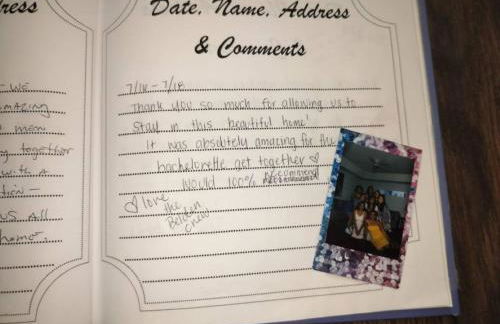 ress
we
amazing
together
with a
tion -
us all
home.
Date, Name, Address
& Comments
7/14 - 7/18
Thank you so much for allowing us to
stay in this beautiful home!
It was absolutely amazing for the
bachelorette get together ♡
Would 100% Recommend
♡ love
the
crew